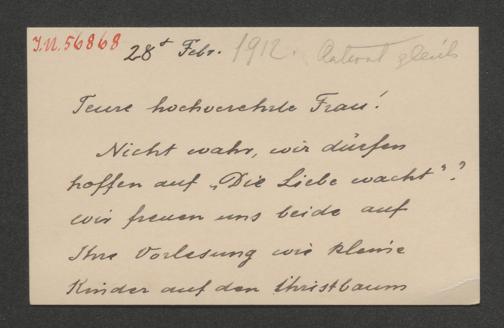 I.N. 56868
28t Febr. 1912. Antwort gleich
Teure hochverehrte Frau!
Nicht wahr, wir dürfen
hoffen auf „Die Liebe wacht"?
wir freuen uns beide auf
Ihre Vorlesung wie kleine
Kinder auf den Christbaum